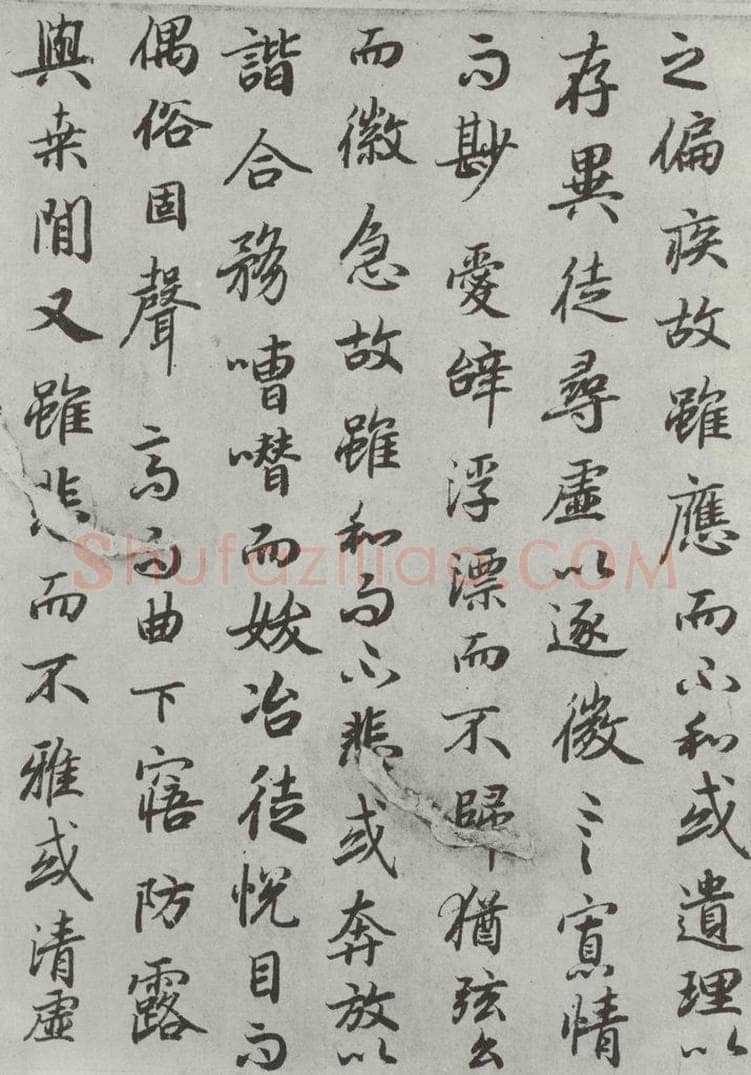 之偏疾故雖應而不和或遺理以
存異徒尋虛以逐微言寡情
而尠愛辭浮漂而不歸猶弦么
而徽急故雖和而不悲或奔放以
諧合務嘈囋而妖冶徒悅目而
偶俗固聲高而曲下寤防露
與桑間又雖悲而不雅或清虛
Shufaziliao.COM